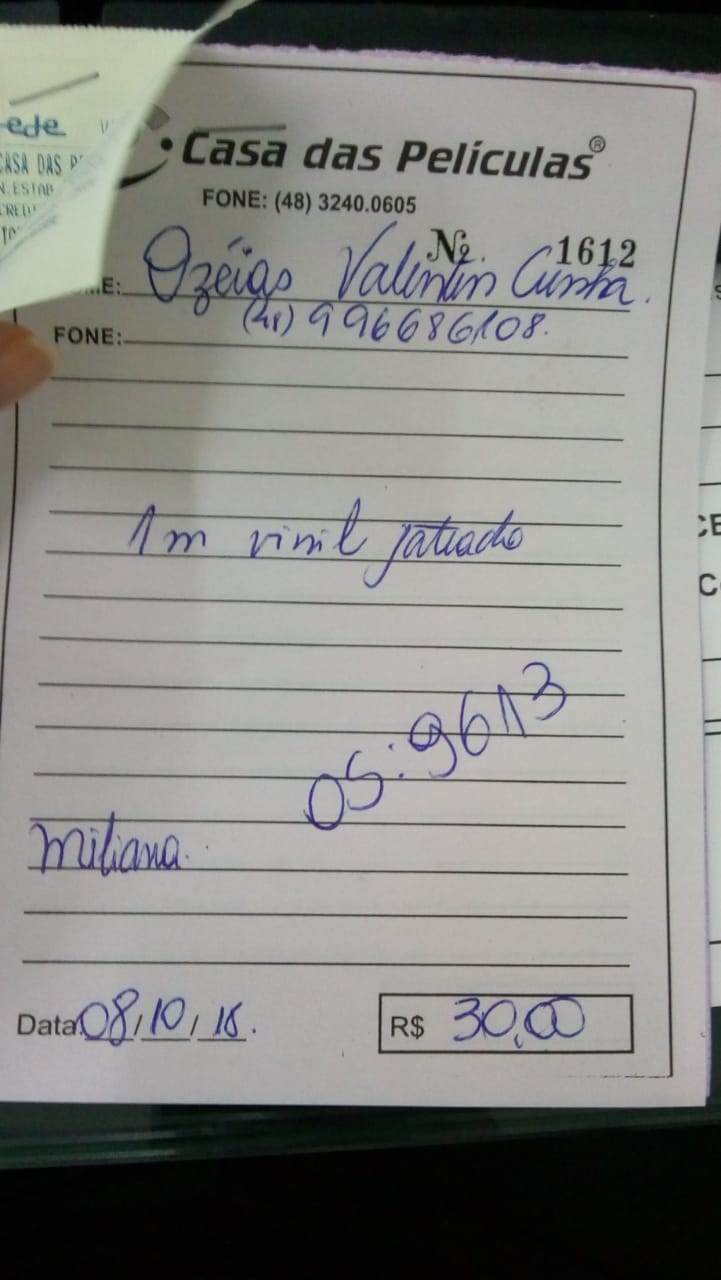 ede
CASA DAS P
N.ESTAB
CREDI
TO
Casa das Películas®
FONE: (48) 3240.0605
Nº 1612
ME: Ozéias Valentin Cunha.
FONE: (48) 996686108.
1m vinil jateado
OS: 9613
Miliana.
Data 08/10/18.
R$ 30,00